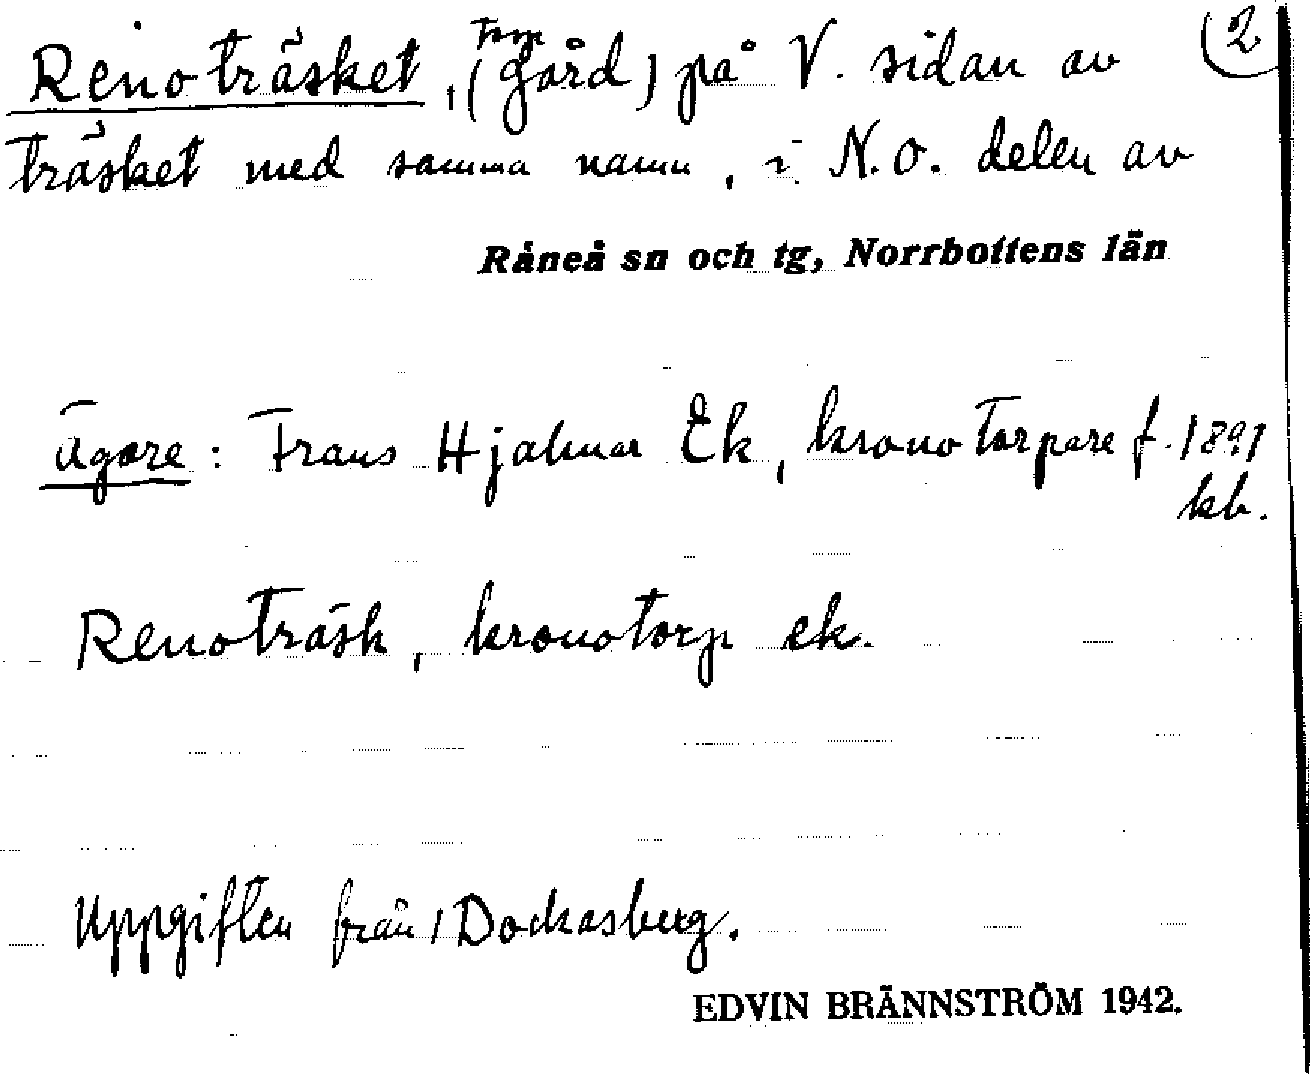 Renoträsket, (Torp Gård) på V. sidan av (2
träsket med samma namn, i N.O. delen av
Råneå sn och tg, Norrbottens län
Ägare: Frans Hjalmar Ek, kronotorpare f. 1891
kb.
Renoträsk, kronotorp ek.
Uppgiften från Dockasberg.
EDVIN BRÄNNSTRÖM 1942.